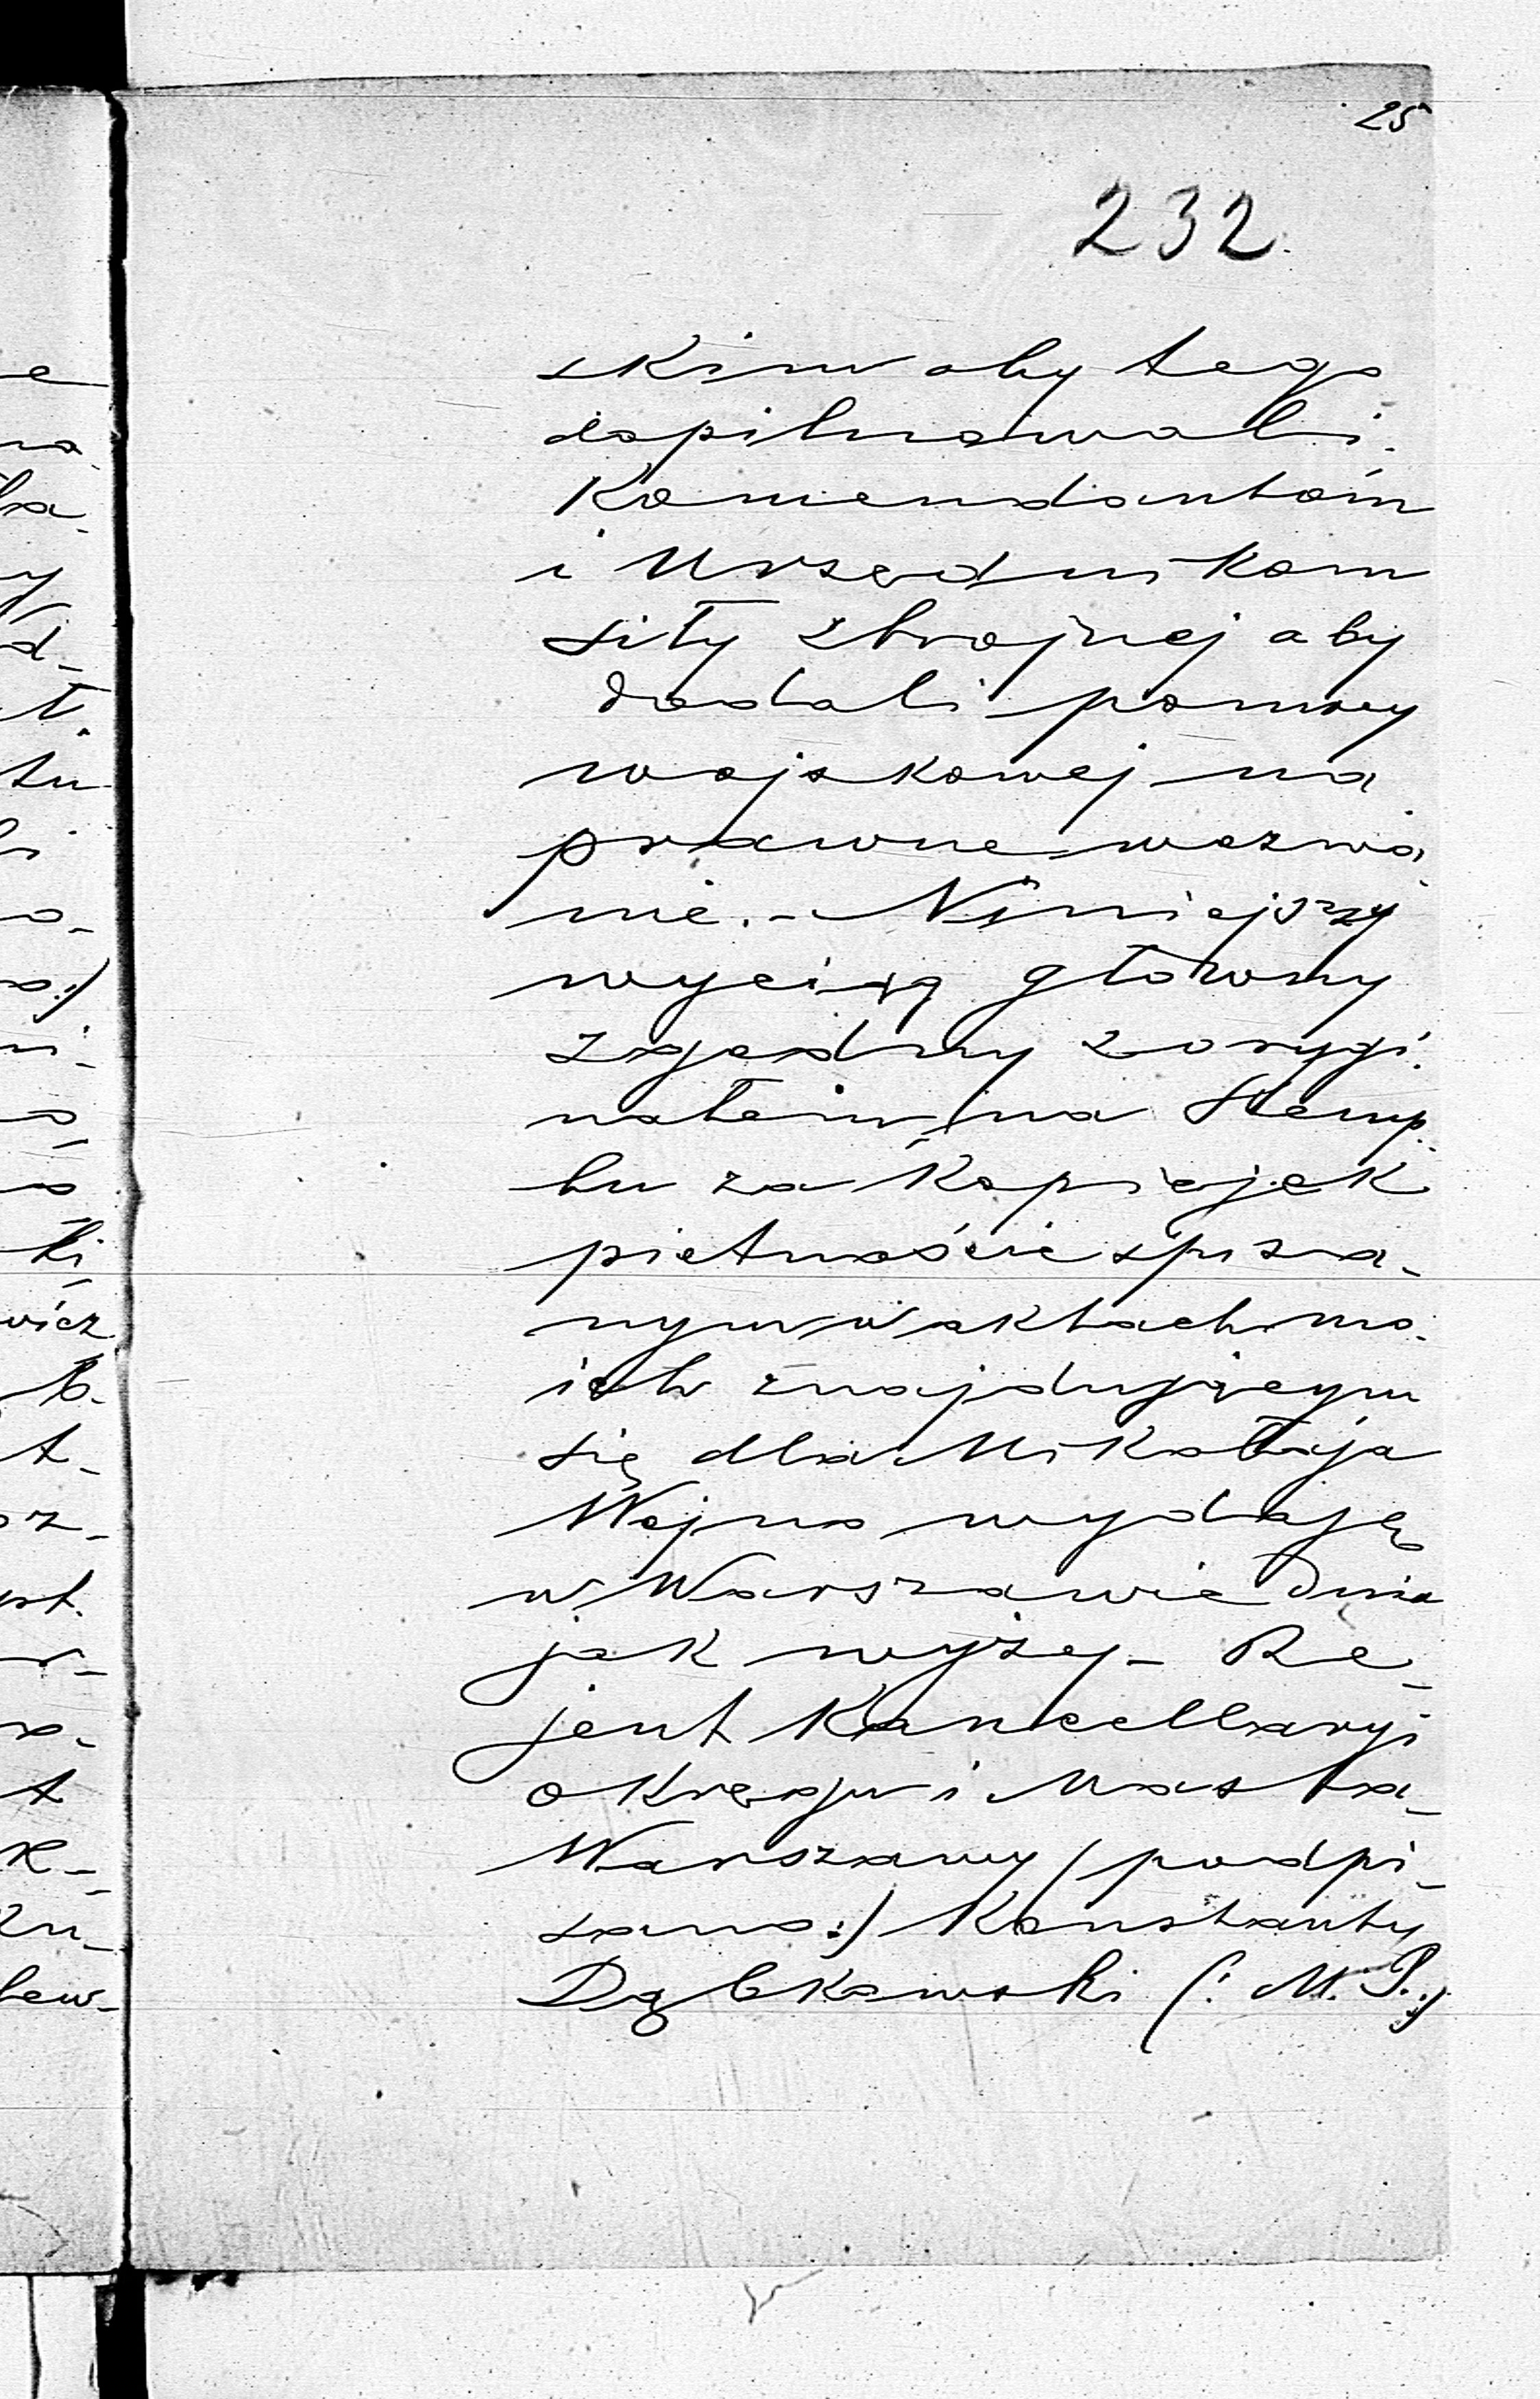 25
232.
skim aby tego
dopilnowali.
Komendantom
i Urzędnikom
siły zbrojnej aby
dodali pomocy
wojskowej na
prawne wezwa-
nie. - Niniejszy
wyciąg główny
zgodny z orygi-
nałem na Stemp-
lu za Kopiejek
pietnaście spisa-
nym w aktach mo-
ich znajdującym
się dla Mikołaja
Wojno wydaję
w Warszawie dnia
jak wyżej - Re-
jent Kancellaryi
okręgu i Miasta
Warszawy / podpi-
sano:/ Konstanty
Dąbkowski (: M. P. :)
e
na
ka
y
d-
t.
tu
li
o-
o:)
ni-
o
ki
wicz
b.
t-
oz-
pt.
r-
a-
t
k-
ku-
lew-